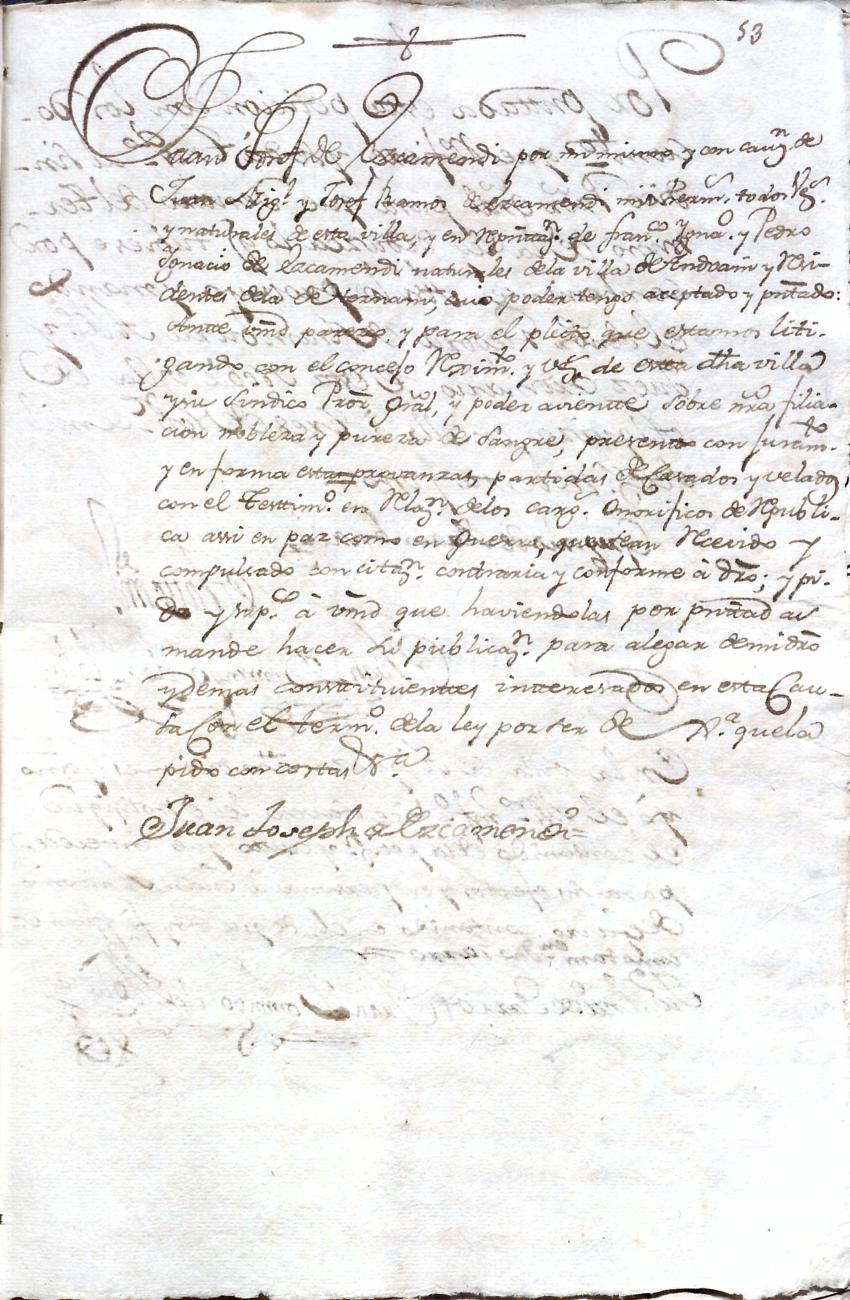 53
Juan Josef de Ezcamendi por mi mismo y con cauz.n de
Juan Mig.l y Josef Ramos de Ezcamendi mis Herm.s todos Vs.
y naturales de esta villa, y en Rpñtaz.n de fran.co Ygna.o y Pedro
Ygnacio de Ezcamendi naturales dela villa de Andoain y Resi-
dentes dela de Hernani, cuio poder tengo aceptado y pñtado:
Ante Vmd parezco, y para el pleito, que, estamos liti-
gando con el concejo Rexim.to y vs. de esta dha villa
y su Sindico Pror Gral, y poder aviente sobre nra filia-
cion nobleza y pureza de Sangre, presento con Juram.to
y en forma estas provanzas, partidas de Casados y velados,
con el testim.o en Rlaz.n delos carg.s Onorificos de Republi-
ca assi en paz como en Guerra, que sean Recivido y
compulsado con citaz.n contraria y conforme à dro; y pi-
do y sup.co à Vmd que haviendolas por pñtadas
mande hacer su publicaz.n para alegar de mi dro
y demas constituientes interesados en esta Cau-
sa Con el term.o dela ley por ser de Xa. quela
pido con costas &.a
Juan Joseph de Ezcamendi=